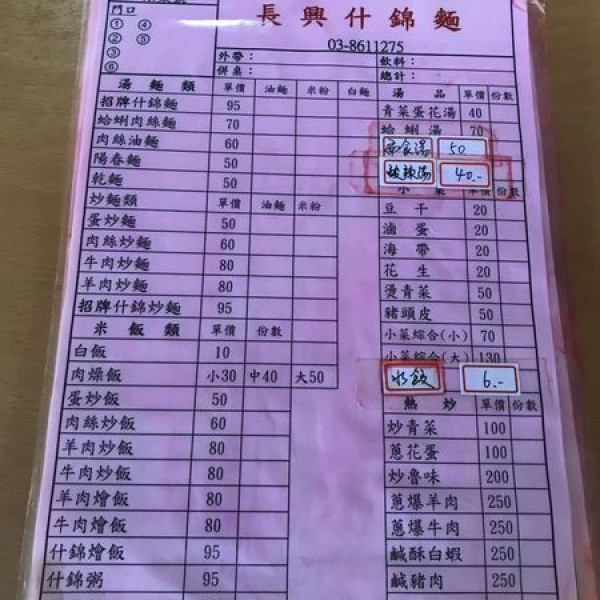 門口
① ④
② ⑤
③
⑥
長興什錦麵
03-8611275
外帶： 飲料：
併桌： 總計：
湯麵類 單價 油麵 米粉 白麵
招牌什錦麵 95
蛤蜊肉絲麵 70
肉絲油麵 60
陽春麵 50
乾麵 50
炒麵類 單價 油麵 米粉
蛋炒麵 50
肉絲炒麵 60
牛肉炒麵 80
羊肉炒麵 80
招牌什錦炒麵 95
米飯類 單價 份數
白飯 10
肉燥飯 小30 中40 大50
蛋炒飯 50
肉絲炒飯 60
羊肉炒飯 80
牛肉炒飯 80
羊肉燴飯 80
牛肉燴飯 80
什錦燴飯 95
什錦粥 95
湯品 單價 份數
青菜蛋花湯 40
蛤蜊湯 70
湯 50
酸辣湯 40.-
小菜 單價 份數
豆干 20
滷蛋 20
海帶 20
花生 20
燙青菜 50
豬頭皮 50
小菜綜合(小) 70
小菜綜合(大) 130
水餃 6.-
熱炒 單價 份數
炒青菜 100
蔥花蛋 100
炒魯味 200
蔥爆羊肉 250
蔥爆牛肉 250
鹹酥白蝦 250
鹹豬肉 250